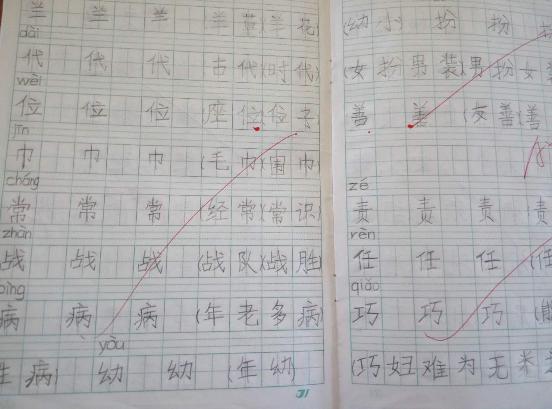 兰 兰 兰 (兰草)(兰花)
dài
代 代 代 (古代)(时代)
wèi
位 位 位 (座位)(位子)
jīn
巾 巾 巾 (毛巾)(围巾)
cháng
常 常 常 (经常)(常识)
zhàn
战 战 战 (战队)(战胜)
bìng
病 病 病 (年老多病)
yòu
病) 幼 幼 (年幼)
31
(幼小) 扮 扮
(女扮男装)(男扮女
善 善 (友善)(善
zé
责 责 责
rèn
任 任 任
qiǎo
巧 巧 巧
(巧妇难为无米